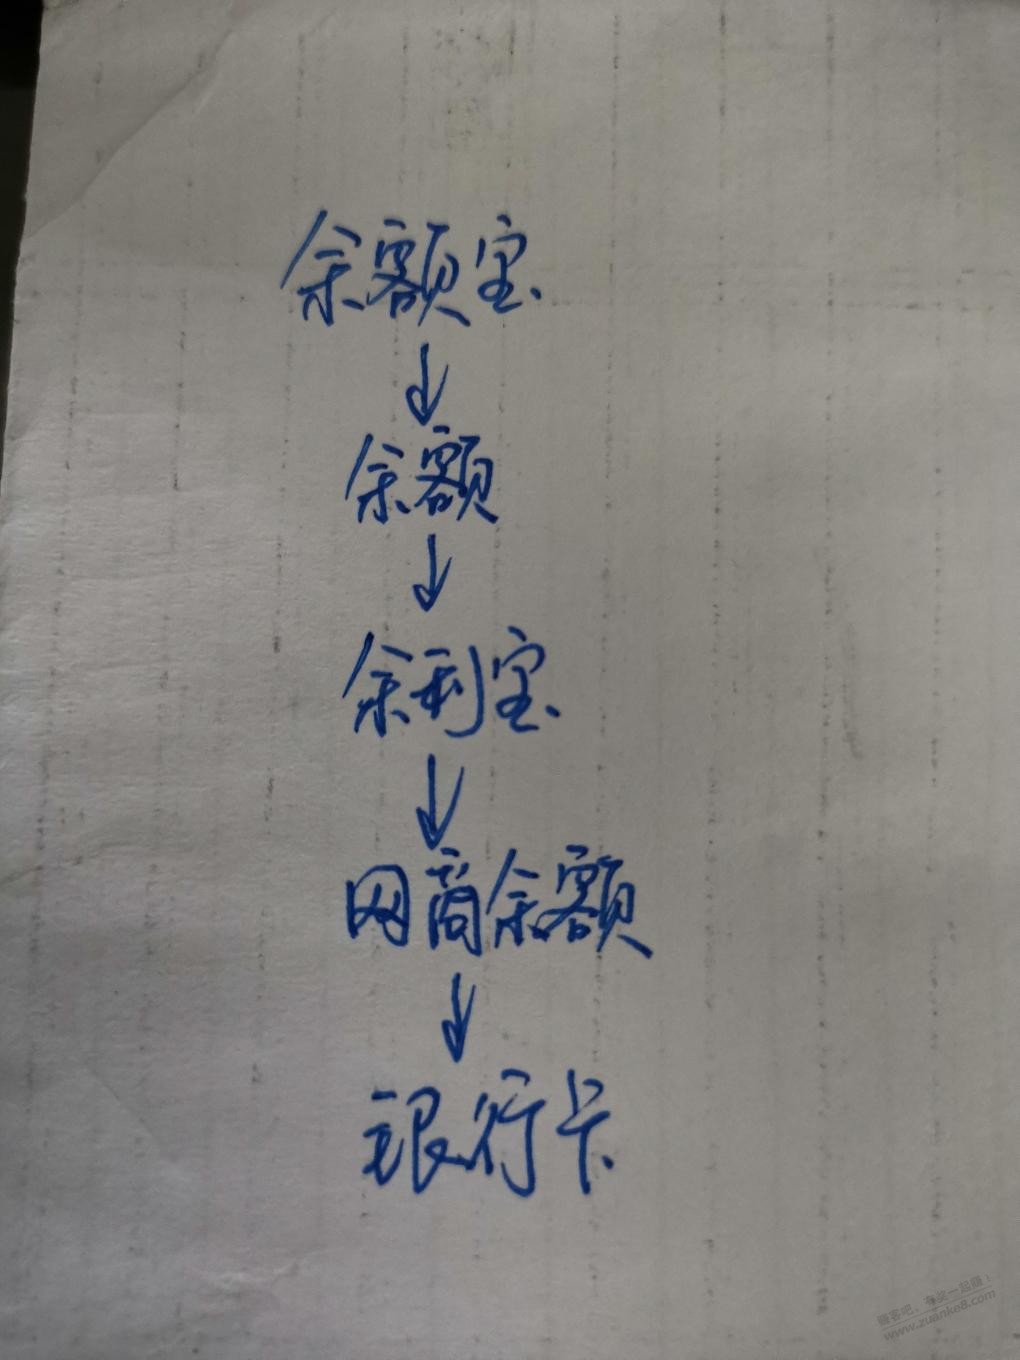 余额宝
↓
余额
↓
余利宝
↓
网商余额
↓
银行卡
赚客吧，有奖一起赚！
www.zuanke8.com